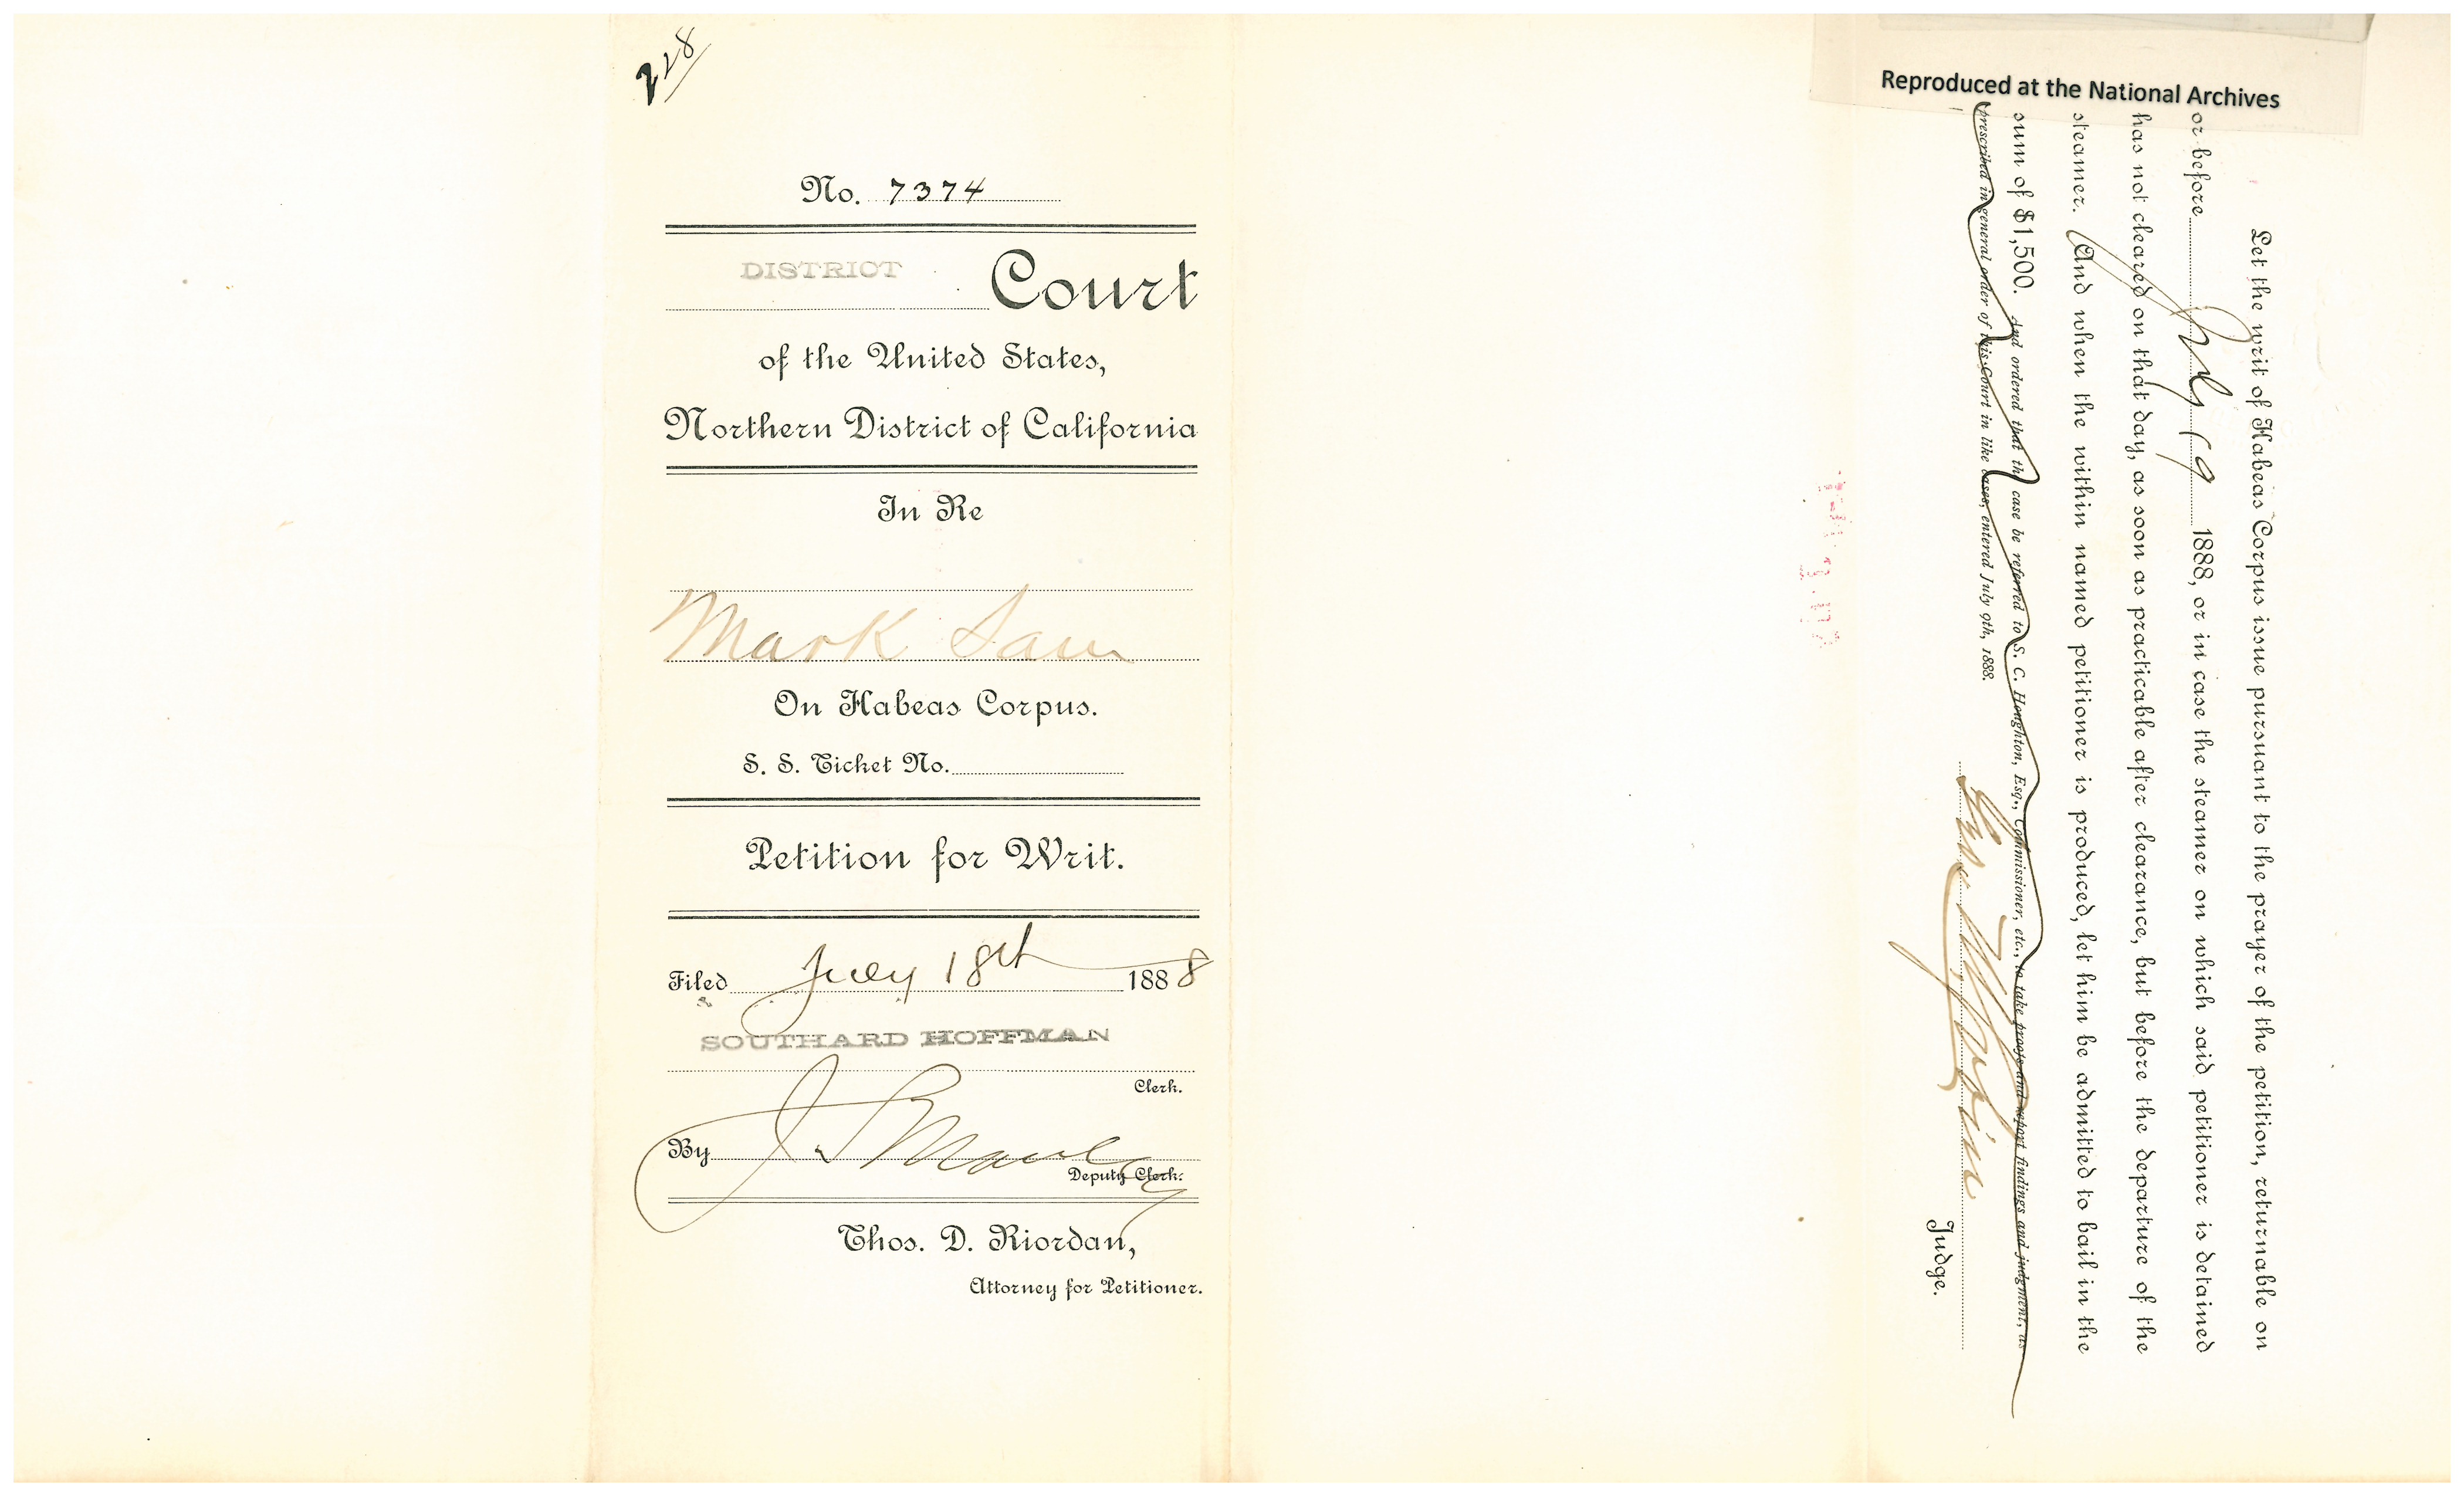 228
No. 7374
DISTRICT Court
of the United States,
Northern District of California
In Re
Mark Sam
On Habeas Corpus.
S. S. Ticket No.
Petition for Writ.
Filed July 18th 1888
SOUTHARD HOFFMAN
Clerk.
By J S Manley
Deputy Clerk.
Thos. D. Riordan,
Attorney for Petitioner.
Reproduced at the National Archives
Let the writ of Habeas Corpus issue pursuant to the prayer of the petition, returnable on
or before July 19 1888, or in case the steamer on which said petitioner is detained
has not cleared on that day, as soon as practicable after clearance, but before the departure of the
steamer. And when the within named petitioner is produced, let him be admitted to bail in the
sum of $1,500. And ordered that th case be referred to S. C. Houghton, Esq., Commissioner, etc., to take proofs and report findings and judgment, as
prescribed in general order of this Court in like cases, entered July 9th, 1888.
Judge.